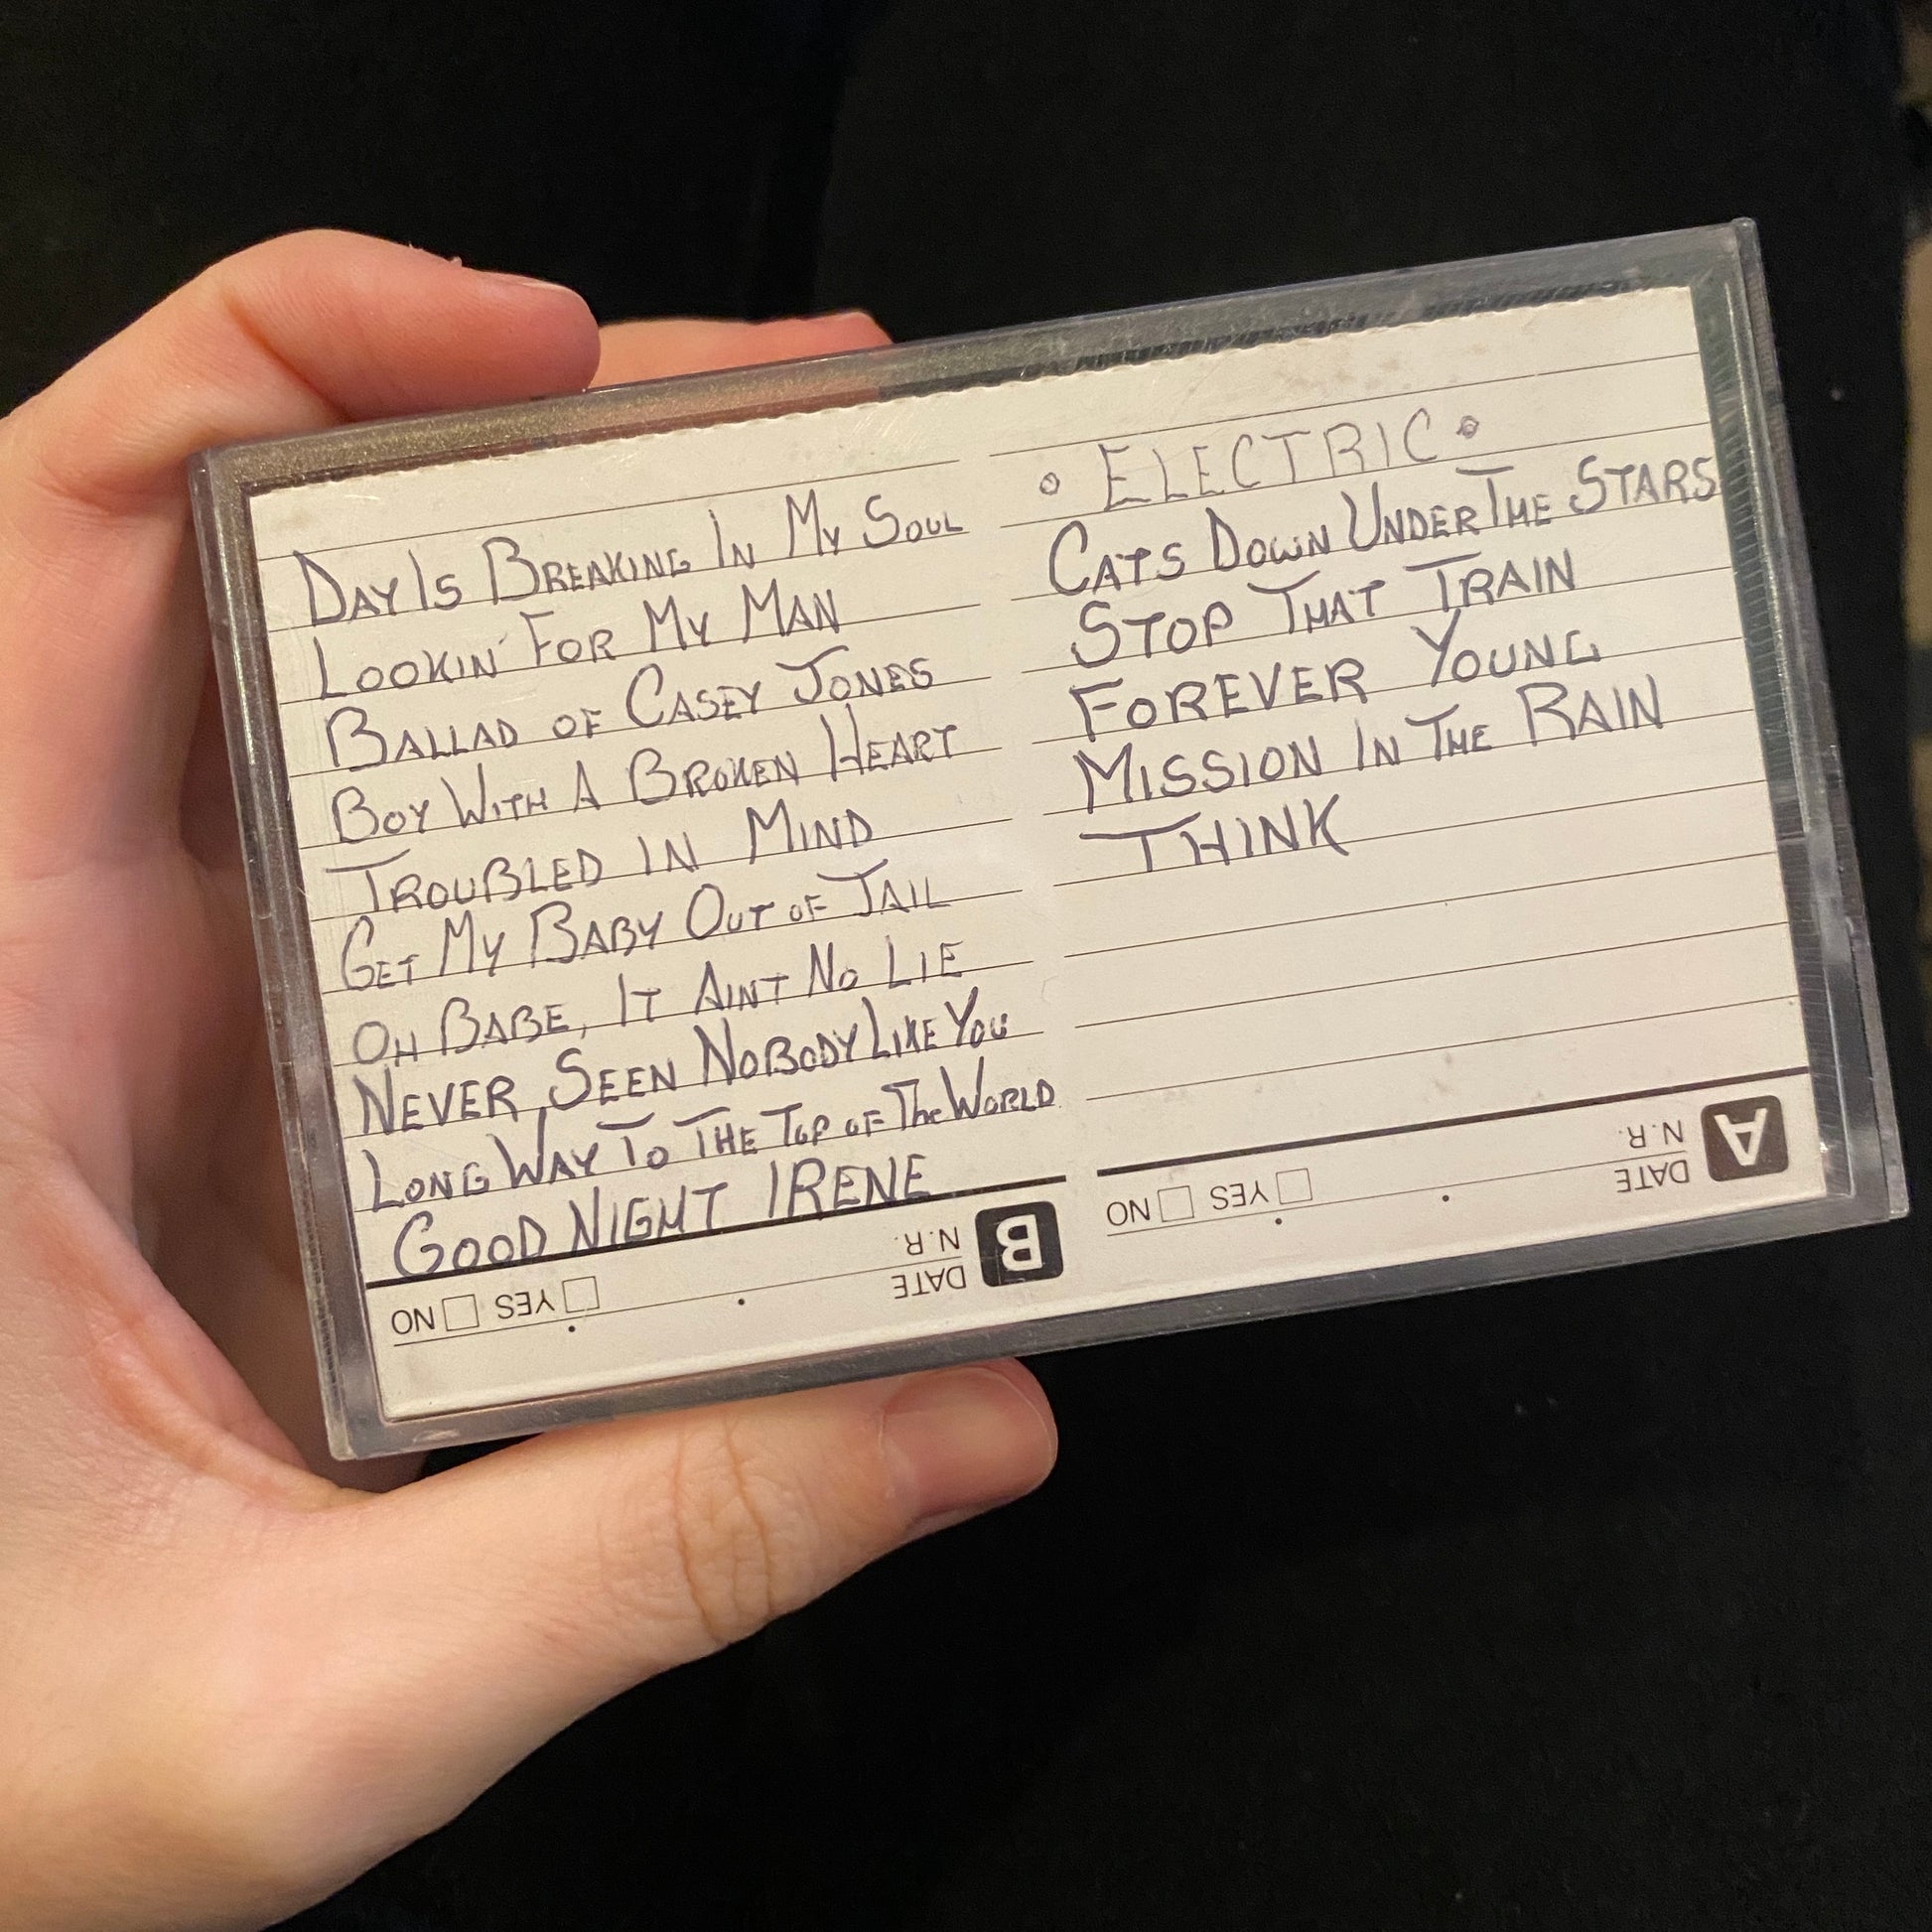 DAY IS BREAKING IN MY SOUL
LOOKIN' FOR MY MAN
BALLAD OF CASEY JONES
BOY WITH A BROKEN HEART
TROUBLED IN MIND
GET MY BABY OUT OF JAIL
OH BABE, IT AINT NO LIE
NEVER SEEN NOBODY LIKE YOU
LONG WAY TO THE TOP OF THE WORLD
GOOD NIGHT IRENE
B DATE
N.R.
YES NO
• ELECTRIC •
CATS DOWN UNDER THE STARS
STOP THAT TRAIN
FOREVER YOUNG
MISSION IN THE RAIN
THINK
A DATE
N.R.
YES NO